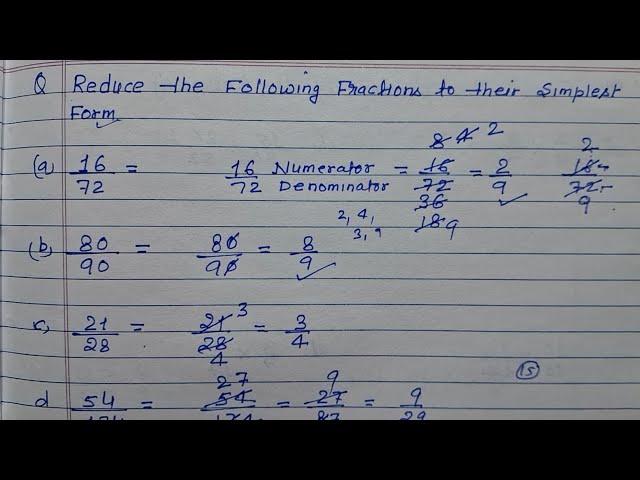 Q Reduce the Following Fractions to their Simplest
Form
8 4 2 2
(a) 16/72 = 16/72 Numerator/Denominator = 16/72 = 2/9 16/72
36 9
2, 4, 3, 9 18 9
(b) 80/90 = 80/90 = 8/9
3
c, 21/28 = 21/28 = 3/4
4
15
27 9
d 54/174 = 54/174 = 27/87 = 9/29